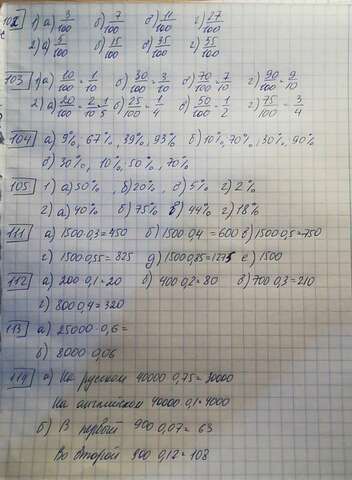 102 1) а) 3/100 б) 7/100 в) 11/100 г) 27/100
2) а) 5/100 б) 15/100 в) 35/100 г) 55/100
103 1) а) 10/100=1/10 б) 30/100=3/10 в) 70/100=7/10 г) 90/100=9/10
2) а) 20/100=2/10=1/5 б) 25/100=1/4 в) 50/100=1/2 г) 75/100=3/4
104 а) 9%, 67%, 39%, 93% б) 10%, 70%, 30%, 90%
в) 30%, 10%, 50%, 70%
105 1) а) 50%, б) 20%, в) 5% г) 2%
2) а) 40% б) 75% в) 44% г) 18%
111 а) 1500·0,3=450 б) 1500·0,4=600 в) 1500·0,5=750
г) 1500·0,55=825 д) 1500·0,85=1275 е) 1500
112 а) 200·0,1=20 б) 400·0,2=80 в) 700·0,3=210
г) 800·0,4=320
113 а) 25000·0,6=
б) 8000·0,06
114 а) На русском 40000·0,75=30000
На английском 40000·0,1=4000
б) В первый 900·0,07=63
Во второй 900·0,12=108